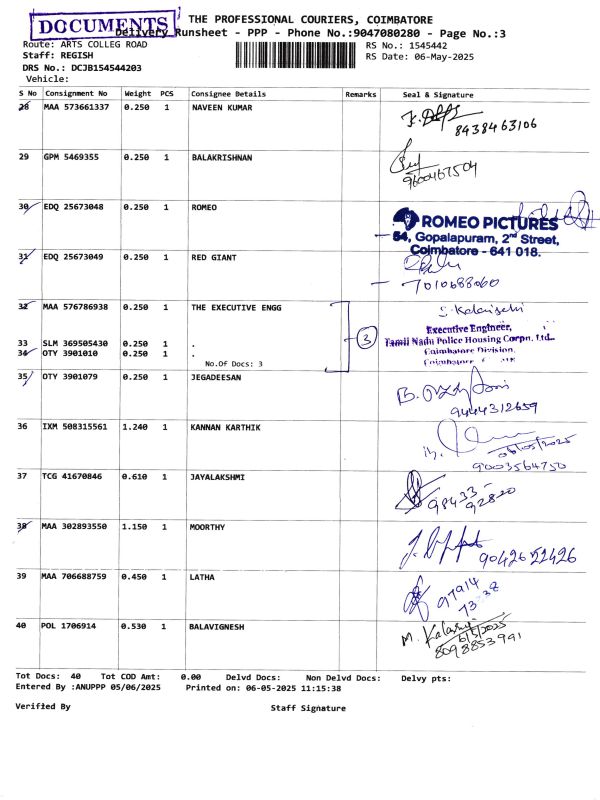 DOCUMENTS
THE PROFESSIONAL COURIERS, COIMBATORE
Delivery Runsheet - PPP - Phone No.:9047080280 - Page No.:3
Route: ARTS COLLEG ROAD
RS No.: 1545442
Staff: REGISH
RS Date: 06-May-2025
DRS No.: DCJB154544203
Vehicle:
S No Consignment No Weight PCS Consignee Details Remarks Seal & Signature
28 MAA 573661337 0.250 1 NAVEEN KUMAR
8438463106
29 GPM 5469355 0.250 1 BALAKRISHNAN
9600467504
30 EDQ 25673048 0.250 1 ROMEO
ROMEO PICTURES
54, Gopalapuram, 2nd Street,
Coimbatore - 641 018.
31 EDQ 25673049 0.250 1 RED GIANT
7010688060
32 MAA 576786938 0.250 1 THE EXECUTIVE ENGG
S. Kalaiselvi
Executive Engineer,
33 SLM 369505430 0.250 1 . 3 Tamil Nadu Police Housing Corpn. Ltd.
34 OTY 3901010 0.250 1 . Coimbatore Division,
No.Of Docs: 3 Coimbatore
35 OTY 3901079 0.250 1 JEGADEESAN
9444312659
36 IXM 508315561 1.240 1 KANNAN KARTHIK
06/05/2025
9003564750
37 TCG 41670846 0.610 1 JAYALAKSHMI
98433-
92820
38 MAA 302893550 1.150 1 MOORTHY
9042652426
39 MAA 706688759 0.450 1 LATHA
97914
73-38
40 POL 1706914 0.530 1 BALAVIGNESH
M.
6/5/2025
8098853991
Tot Docs: 40 Tot COD Amt: 0.00 Delvd Docs: Non Delvd Docs: Delvy pts:
Entered By :ANUPPP 05/06/2025 Printed on: 06-05-2025 11:15:38
Verified By Staff Signature